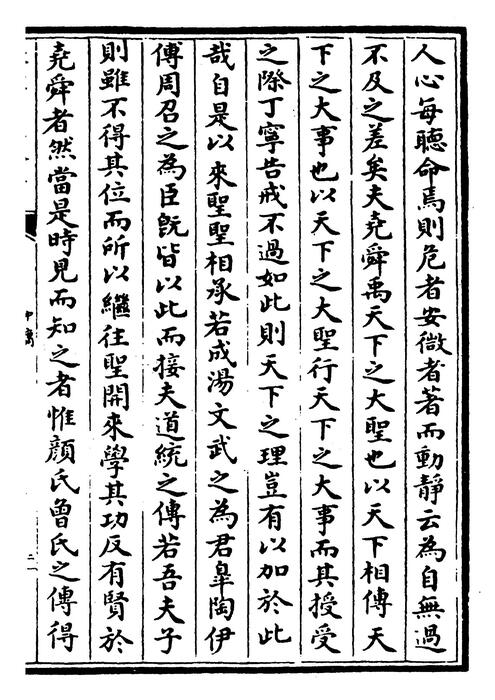 人心每聽命焉則危者安微者著而動靜云為自無過
不及之差矣夫堯舜禹天下之大聖也以天下相傳天
下之大事也以天下之大聖行天下之大事而其授受
之際丁寧告戒不過如此則天下之理豈有以加於此
哉自是以來聖聖相承若成湯文武之為君臯陶伊
傅周召之為臣旣皆以此而接夫道統之傳若吾夫子
則雖不得其位而所以繼往聖開來學其功反有賢於
堯舜者然當是時見而知之者惟顔氏曾氏之傳得
中庸